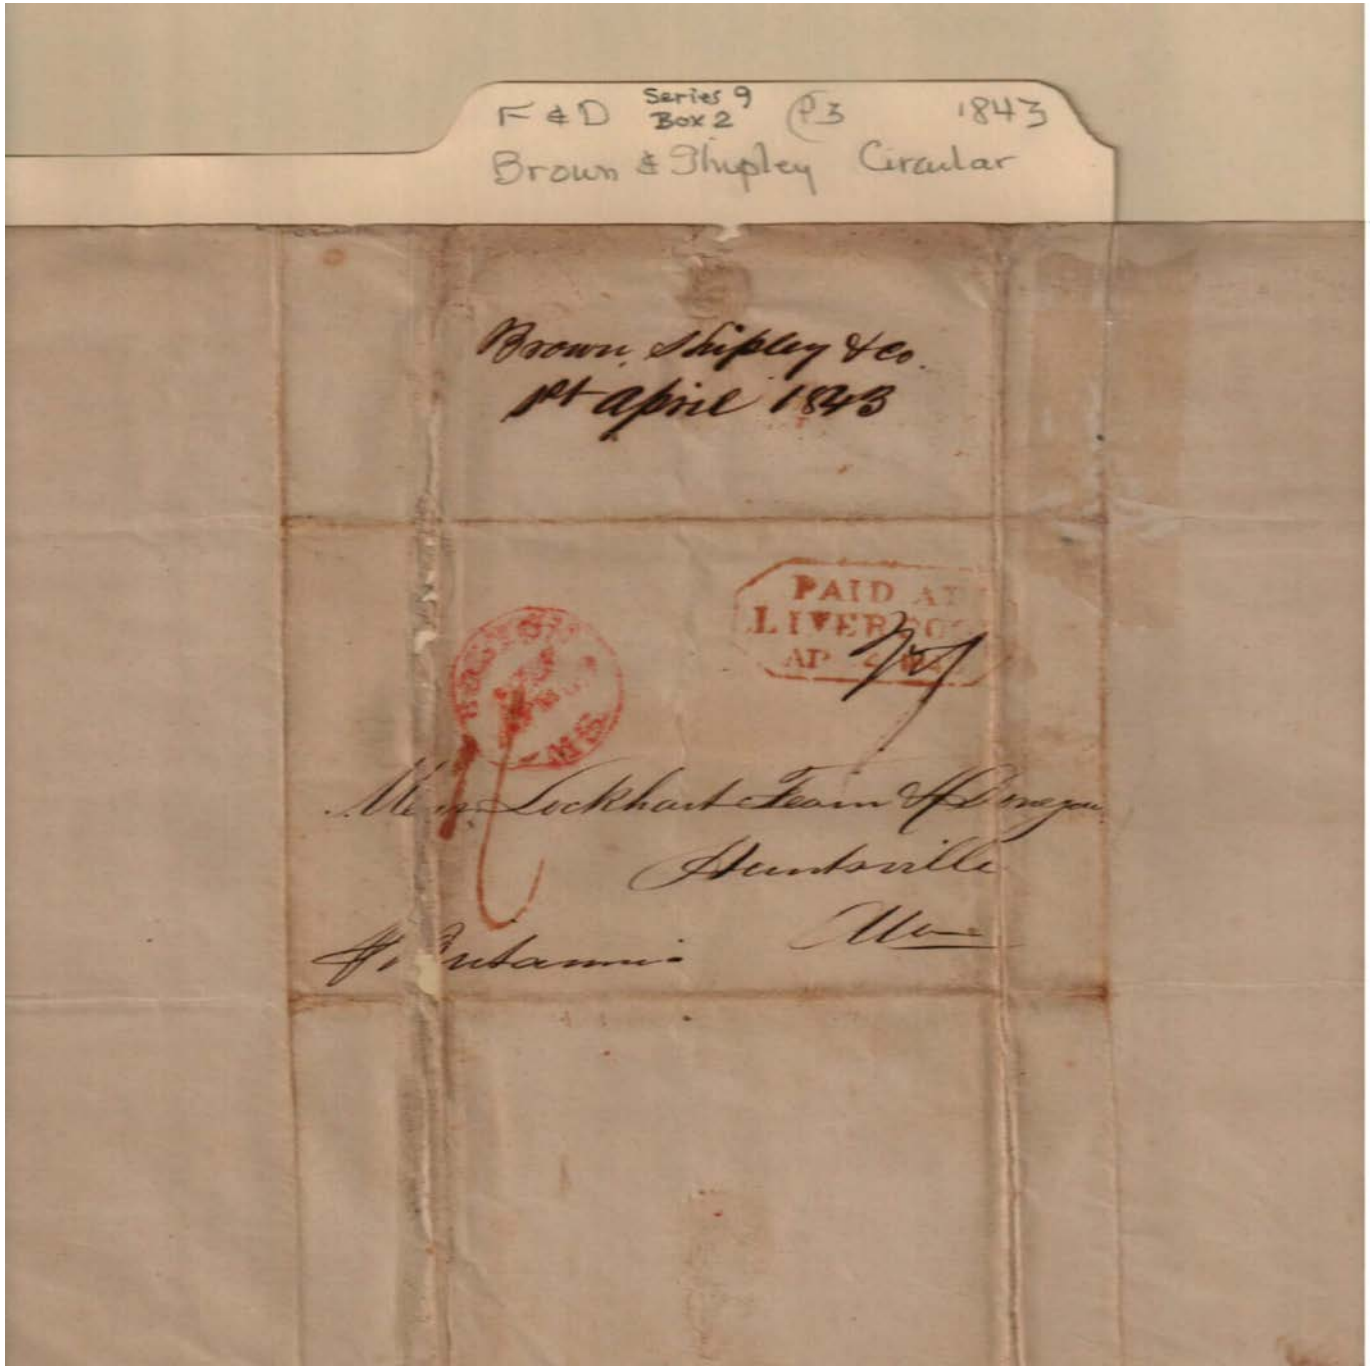 F & D Series 9 Box 2 P3 1843
Brown & Shipley Circular
Brown, Shipley & Co.
1st April 1843
PAID AT
LIVERPOO
AP 4
BOSTON
Lockhart Fearn & Donegan
Huntsville
Britannia